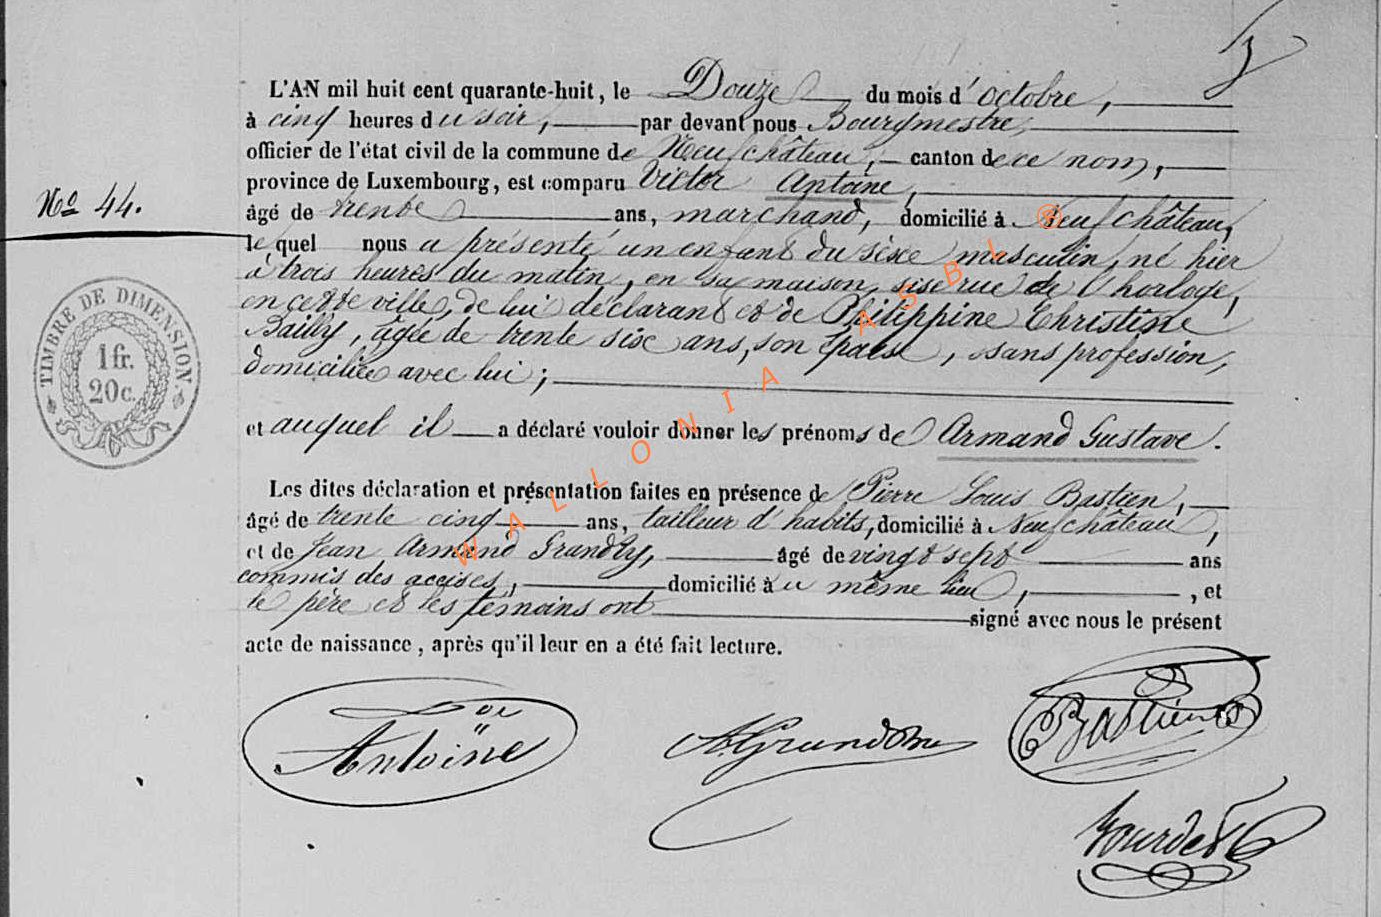 L'AN mil huit cent quarante-huit, le Douze du mois d'octobre,
à cinq heures du soir, par devant nous Bourgmestre,
officier de l'état civil de la commune de Neufchâteau, canton de ce nom,
province de Luxembourg, est comparu Victor Antoine,
Nº 44.
âgé de trente ans, marchand, domicilié à Neufchâteau,
lequel nous a présenté un enfant du sexe masculin, né hier
à trois heures du matin, en sa maison, sise rue de l'horloge,
en cette ville, de lui déclarant et de Philippine Christine
Bailly, agée de trente six ans, son Epouse, sans profession,
domiciliée avec lui;
TIMBRE DE DIMENSION
1 fr.
20 c.
et auquel il a déclaré vouloir donner les prénoms de Armand Gustave.
Les dites déclaration et présentation faites en présence de Pierre Louis Bastien,
âgé de trente cinq ans, tailleur d'habits, domicilié à Neufchâteau,
et de Jean Armand âgé de vingt sept ans
commis des accises, domicilié au même lieu, , et
le père et les témoins ont signé avec nous le présent
acte de naissance, après qu'il leur en a été fait lecture.
Antoine
Bastien
WALLONIA ASBL ®